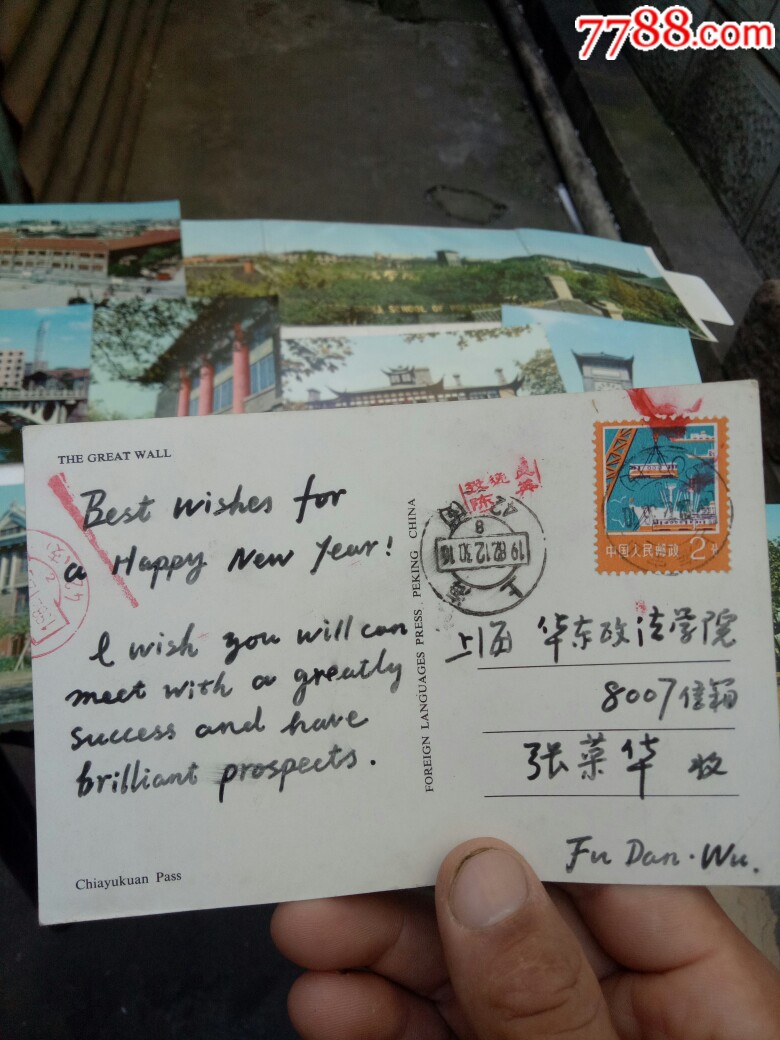 7788.com
THE GREAT WALL
Best wishes for
a Happy New Year!
I wish you will can
meet with a greatly
success and have
brilliant prospects.
Chiayukuan Pass
FOREIGN LANGUAGES PRESS PEKING CHINA
上海
1982.12.30.16
中国人民邮政 2分
上海 华东政法学院
8007信箱
张菜华 收
Fu Dan. Wu.